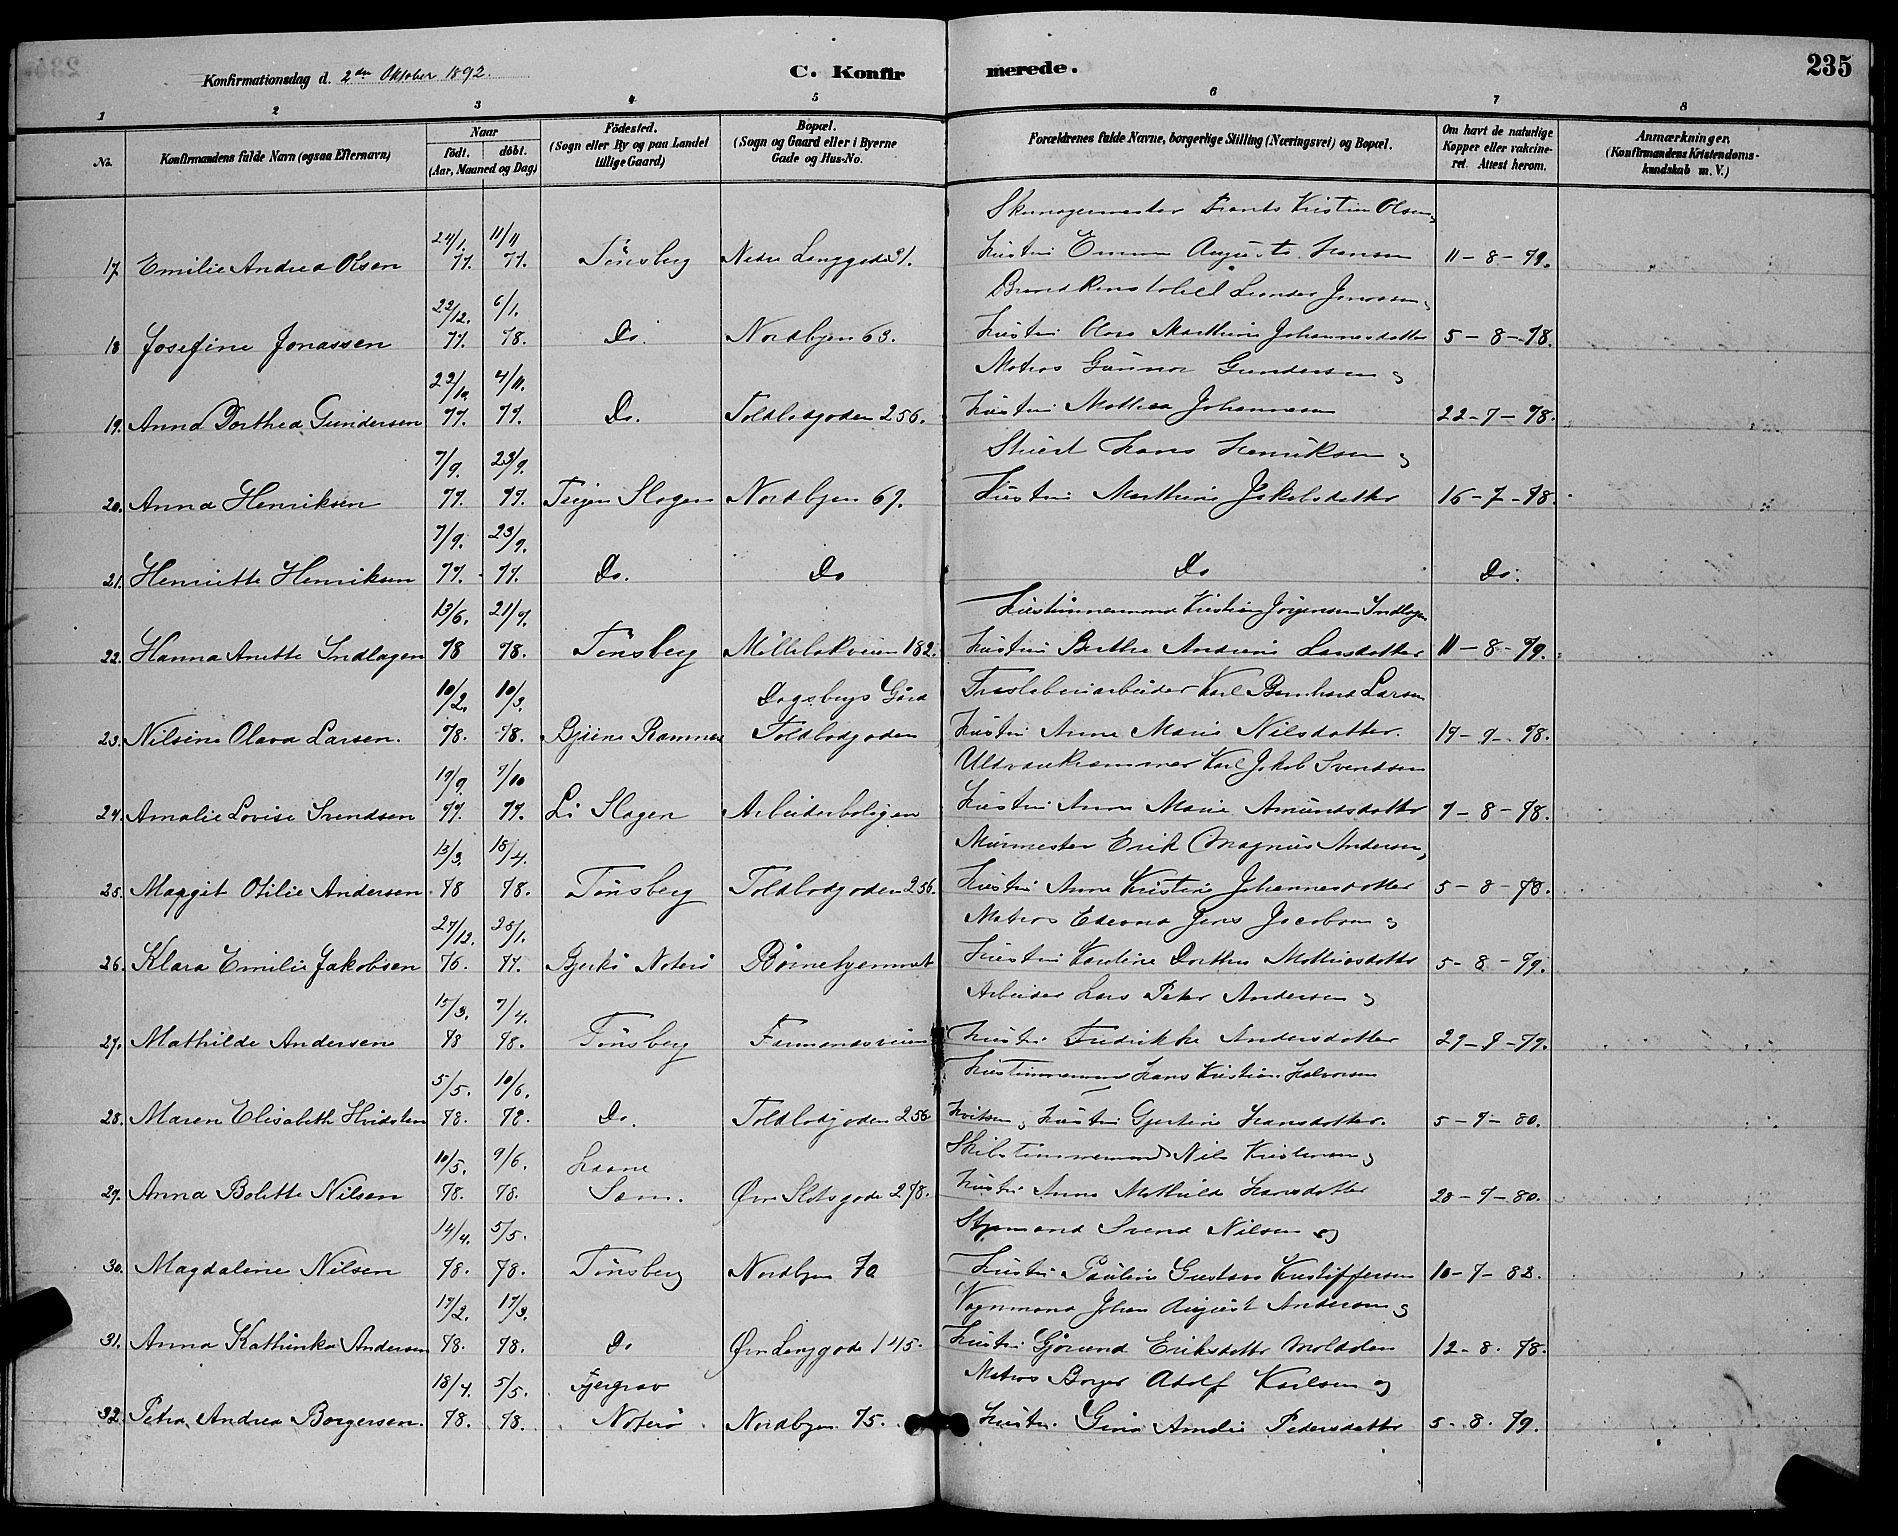 235
Konfirmationsdag d. 2den Oktober 1892.
C. Konfirmerede.
1 2 3 4 5 6 7 8
No.
Konfirmandens fulde Navn (ogsaa Efternavn)
Naar
födt. döbt.
(Aar, Maaned og Dag)
Födested.
(Sogn eller By og paa Landet
tillige Gaard)
Bopæl.
(Sogn og Gaard eller i Byerne
Gade og Hus-No.
Forældrenes fulde Navne, borgerlige Stilling (Næringsvei) og Bopæl.
Om havt de naturlige
Kopper eller vakcine-
ret. Attest herom.
Anmærkninger.
(Konfirmandens Kristendoms-
kundskab m. V.)
24/1. 11/11 Skomagermester Frants Kristian Olsen,
17. Emilie Andrea Olsen 77. 77. Tönsberg Nedre Langgade 31. Hustru Emma Augusta Hansen 11-8-79.
22/12. 6/1. Jonassen,
18 Josefine Jonassen 77. 78. Do. Nordbyen 63. Hustru Marthine Johannesdatter 5-8-78.
22/10. 4/11. Matros Gunnar Gundersen og
19. Anna Dorthea Gundersen 77. 77. Do. Toldbodgaden 256. Hustru Mathea Johannesen 22-7-78.
7/9. 23/9. Stuert Hans Henriksen og
20. Anna Henriksen 77. 77. Slagen Nordbyen 67. Hustru Marthine Jakobsdatter 16-7-78.
7/9. 23/9.
21. Henriette Henriksen 77. 77. Do. Do Do Do.
13/6. 21/7. Hustömmermand Kristian Jörgensen Indlagen
22. Hanna Anette Indlagen 78 78. Tönsberg Möllebakveien 182. Hustru Berthe Andrine Larsdatter 11-8-79.
10/2. 10/3. Dagsbergs Gård Karl Bernhard Larsen
23. Nilsine Olava Larsen. 78. 78. Ramnes Toldbodgaden Hustru Anne Marie Nilsdatter.
19/9. 7/10 Karl Jakob Svendsen
24. Amalie Lovise Svendsen 77. 77. Li Slagen Arbeiderboligen Hustru Anne Marie Amundsdatter 7-8-78.
13/3. 18/4. Murmester Erik Magnus Andersen,
25. Margit Otilie Andersen 78 78. Tönsberg Toldbodgaden 256. Hustru Anne Kristine Johannesdatter 5-8-78.
27/12. 28/1. Matros Jens Jacobsen og
26. Klara Emilie Jakobsen 76. 77. Bjerkö Nöterö Börnehjemmet Hustru Karoline Dorthea Mathiasdatter 5-8-79.
15/3. 7/4. Arbeider Lars Peter Andersen og
27. Mathilde Andersen 78 78. Tönsberg Farmandsveien Hustru Fredrikke Andersdatter 29-9-79.
5/5. 10/6. Hustömmermand Hans Kristian Halvorsen
28. Maren Elisabeth Hvidsten 78. 78. Do. Toldbodgaden 256 Hustru Gjertine Hansdatter. 5-7-80.
10/5. 9/6. Skibstömmermand Nils Kristensen og
29. Anna Bolette Nilsen 78. 78. Sæm. Övre Slotsgade 278. Hustru Anna Mathilde Hansdatter 28-7-80.
14/4. 5/5. Styrmand Svend Nilsen og
30. Magdalene Nilsen 78. 78. Tönsberg Nordbyen 70 Hustru Pauline Gustava Kristoffersen 10-7-82.
17/2. 17/3. Vognmand Johan August Andersen og
31. Anna Kathinka Andersen 78. 78. Do Övre Langgade 145. Hustru Eriksdatter 12-8-78.
18/4. 5/5. Matros Borger Adolf Karlsen og
32. Petra Andrea Borgersen. 78. 78. Nöterö Nordbyen 75. Hustru Gina Amalie Pedersdatter 5-8-79.